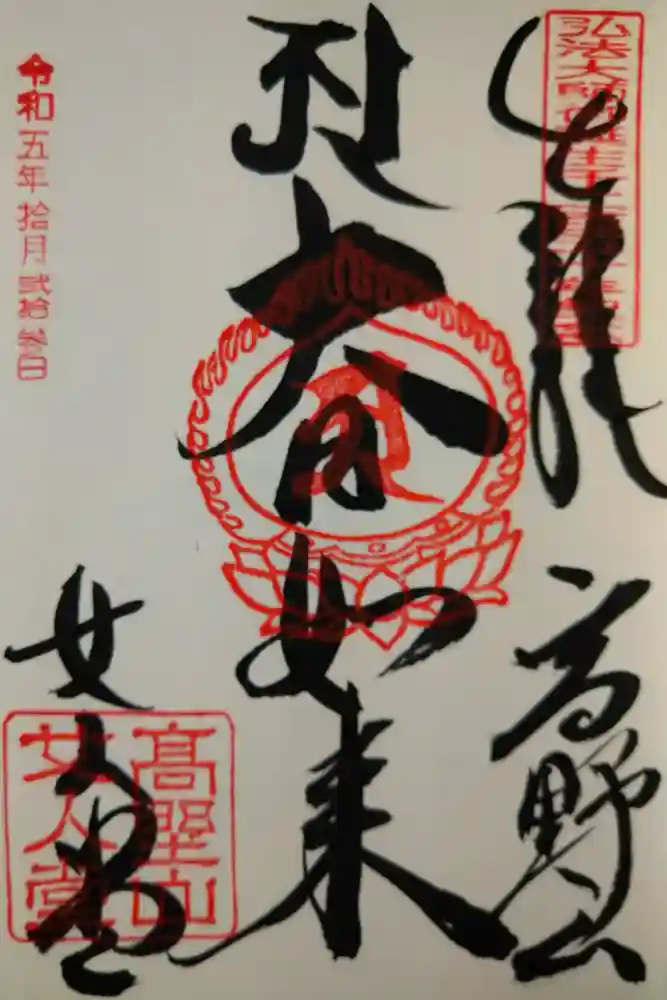 弘法大師御誕生千二百五十年記念
高野山
大日如来
女人堂
高野山
女人堂
令和五年拾月弐拾参日